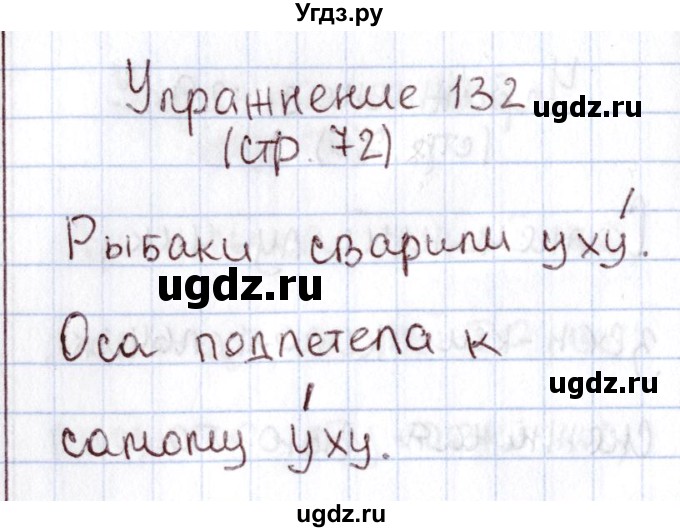 Угдз.ру
Упражнение 132
ugdz.ru
(стр. 72)
Рыбаки сварили уху́.
ugdz.ru
Оса подлетела к
ugdz.ru
самому у́ху.
ugdz.ru